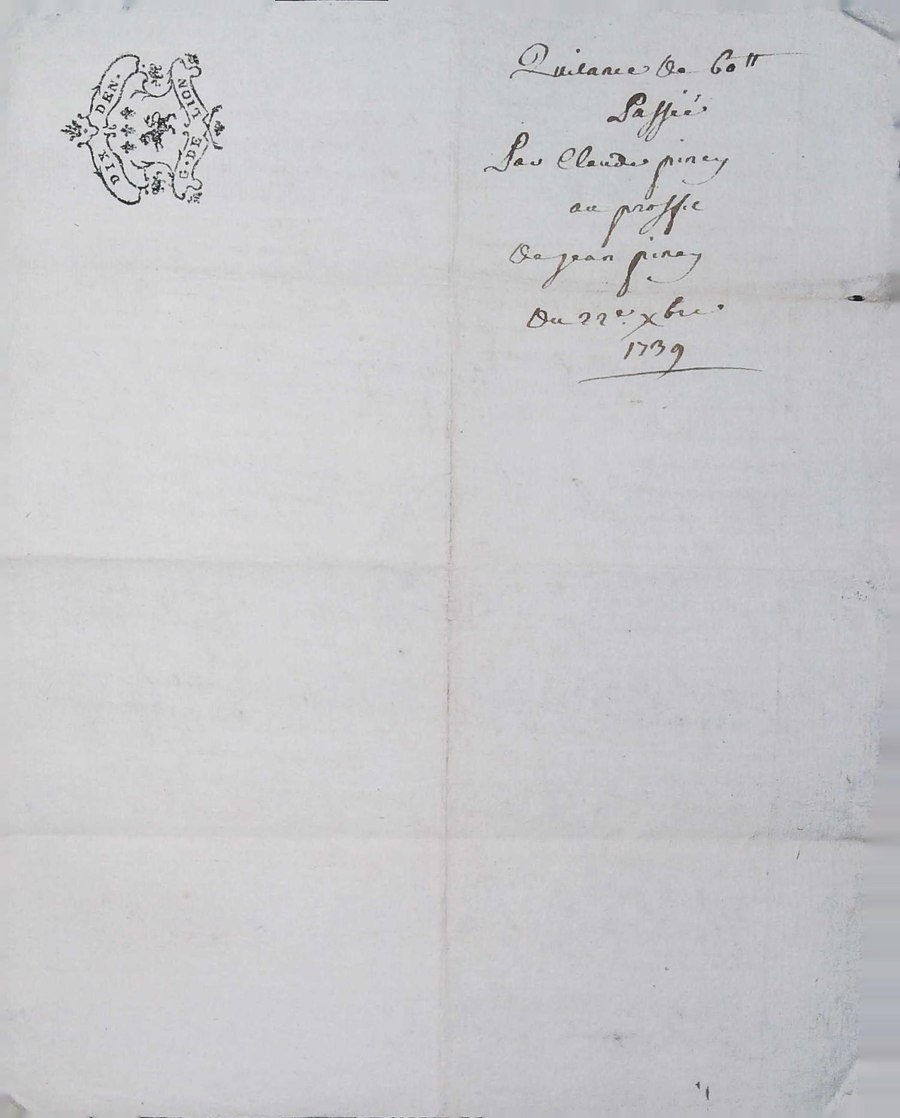 DIX DEN.
G. DE NOIT
Quitance de 60 tt
Passée
Par Claude piney
au proffic
de jean piney
du 22e. xbre
1739